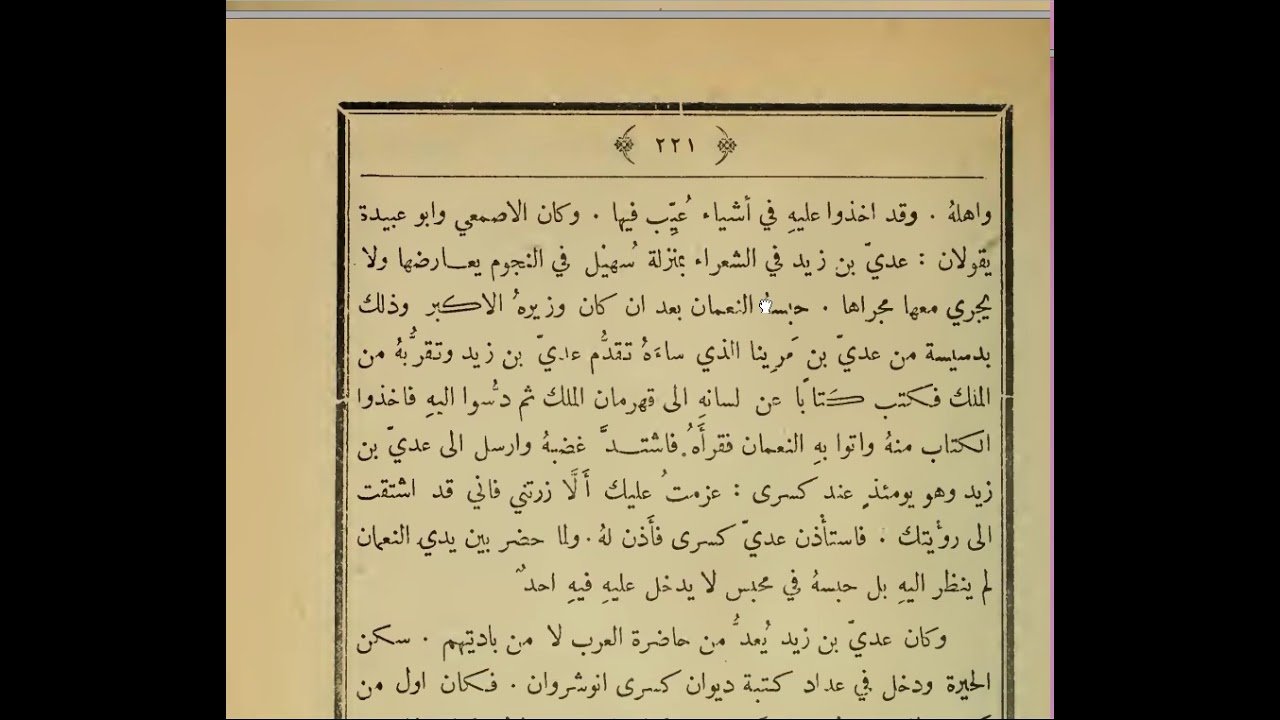 ٢٢١
واهلهُ . وقد اخذوا عليهِ في أشياء عُيِّب فيها . وكان الاصمعي وابو عبيدة
يقولان : عديّ بن زيد في الشعراء بمنزلة سُهَيْل في النجوم يعارضها ولا
يجري معها مجراها . حبسهُ النعمان بعد ان كان وزيرهُ الاكبر وذلك
بدسيسة من عديّ بن مَرِينا الذي ساءَهُ تقدُّم عديّ بن زيد وتقرُّبهُ من
الملك فكتب كتابًا عن لسانهِ الى قهرمان الملك ثم دسُّوا اليهِ فاخذوا
الكتاب منهُ واتوا بهِ النعمان فقرأَهُ فاشتدَّ غضبهُ وارسل الى عديّ بن
زيد وهو يومئذٍ عند كسرى : عزمتُ عليك أَلَّا زرتني فاني قد اشتقت
الى رؤْيتك . فاستأْذن عديّ كسرى فأَذن لهُ . ولما حضر بين يدي النعمان
لم ينظر اليهِ بل حبسهُ في محبس لا يدخل عليهِ فيهِ احدٌ
وكان عديّ بن زيد يُعدُّ من حاضرة العرب لا من باديتهم . سكن
الحيرة ودخل في عداد كتبة ديوان كسرى انوشروان . فكان اول من